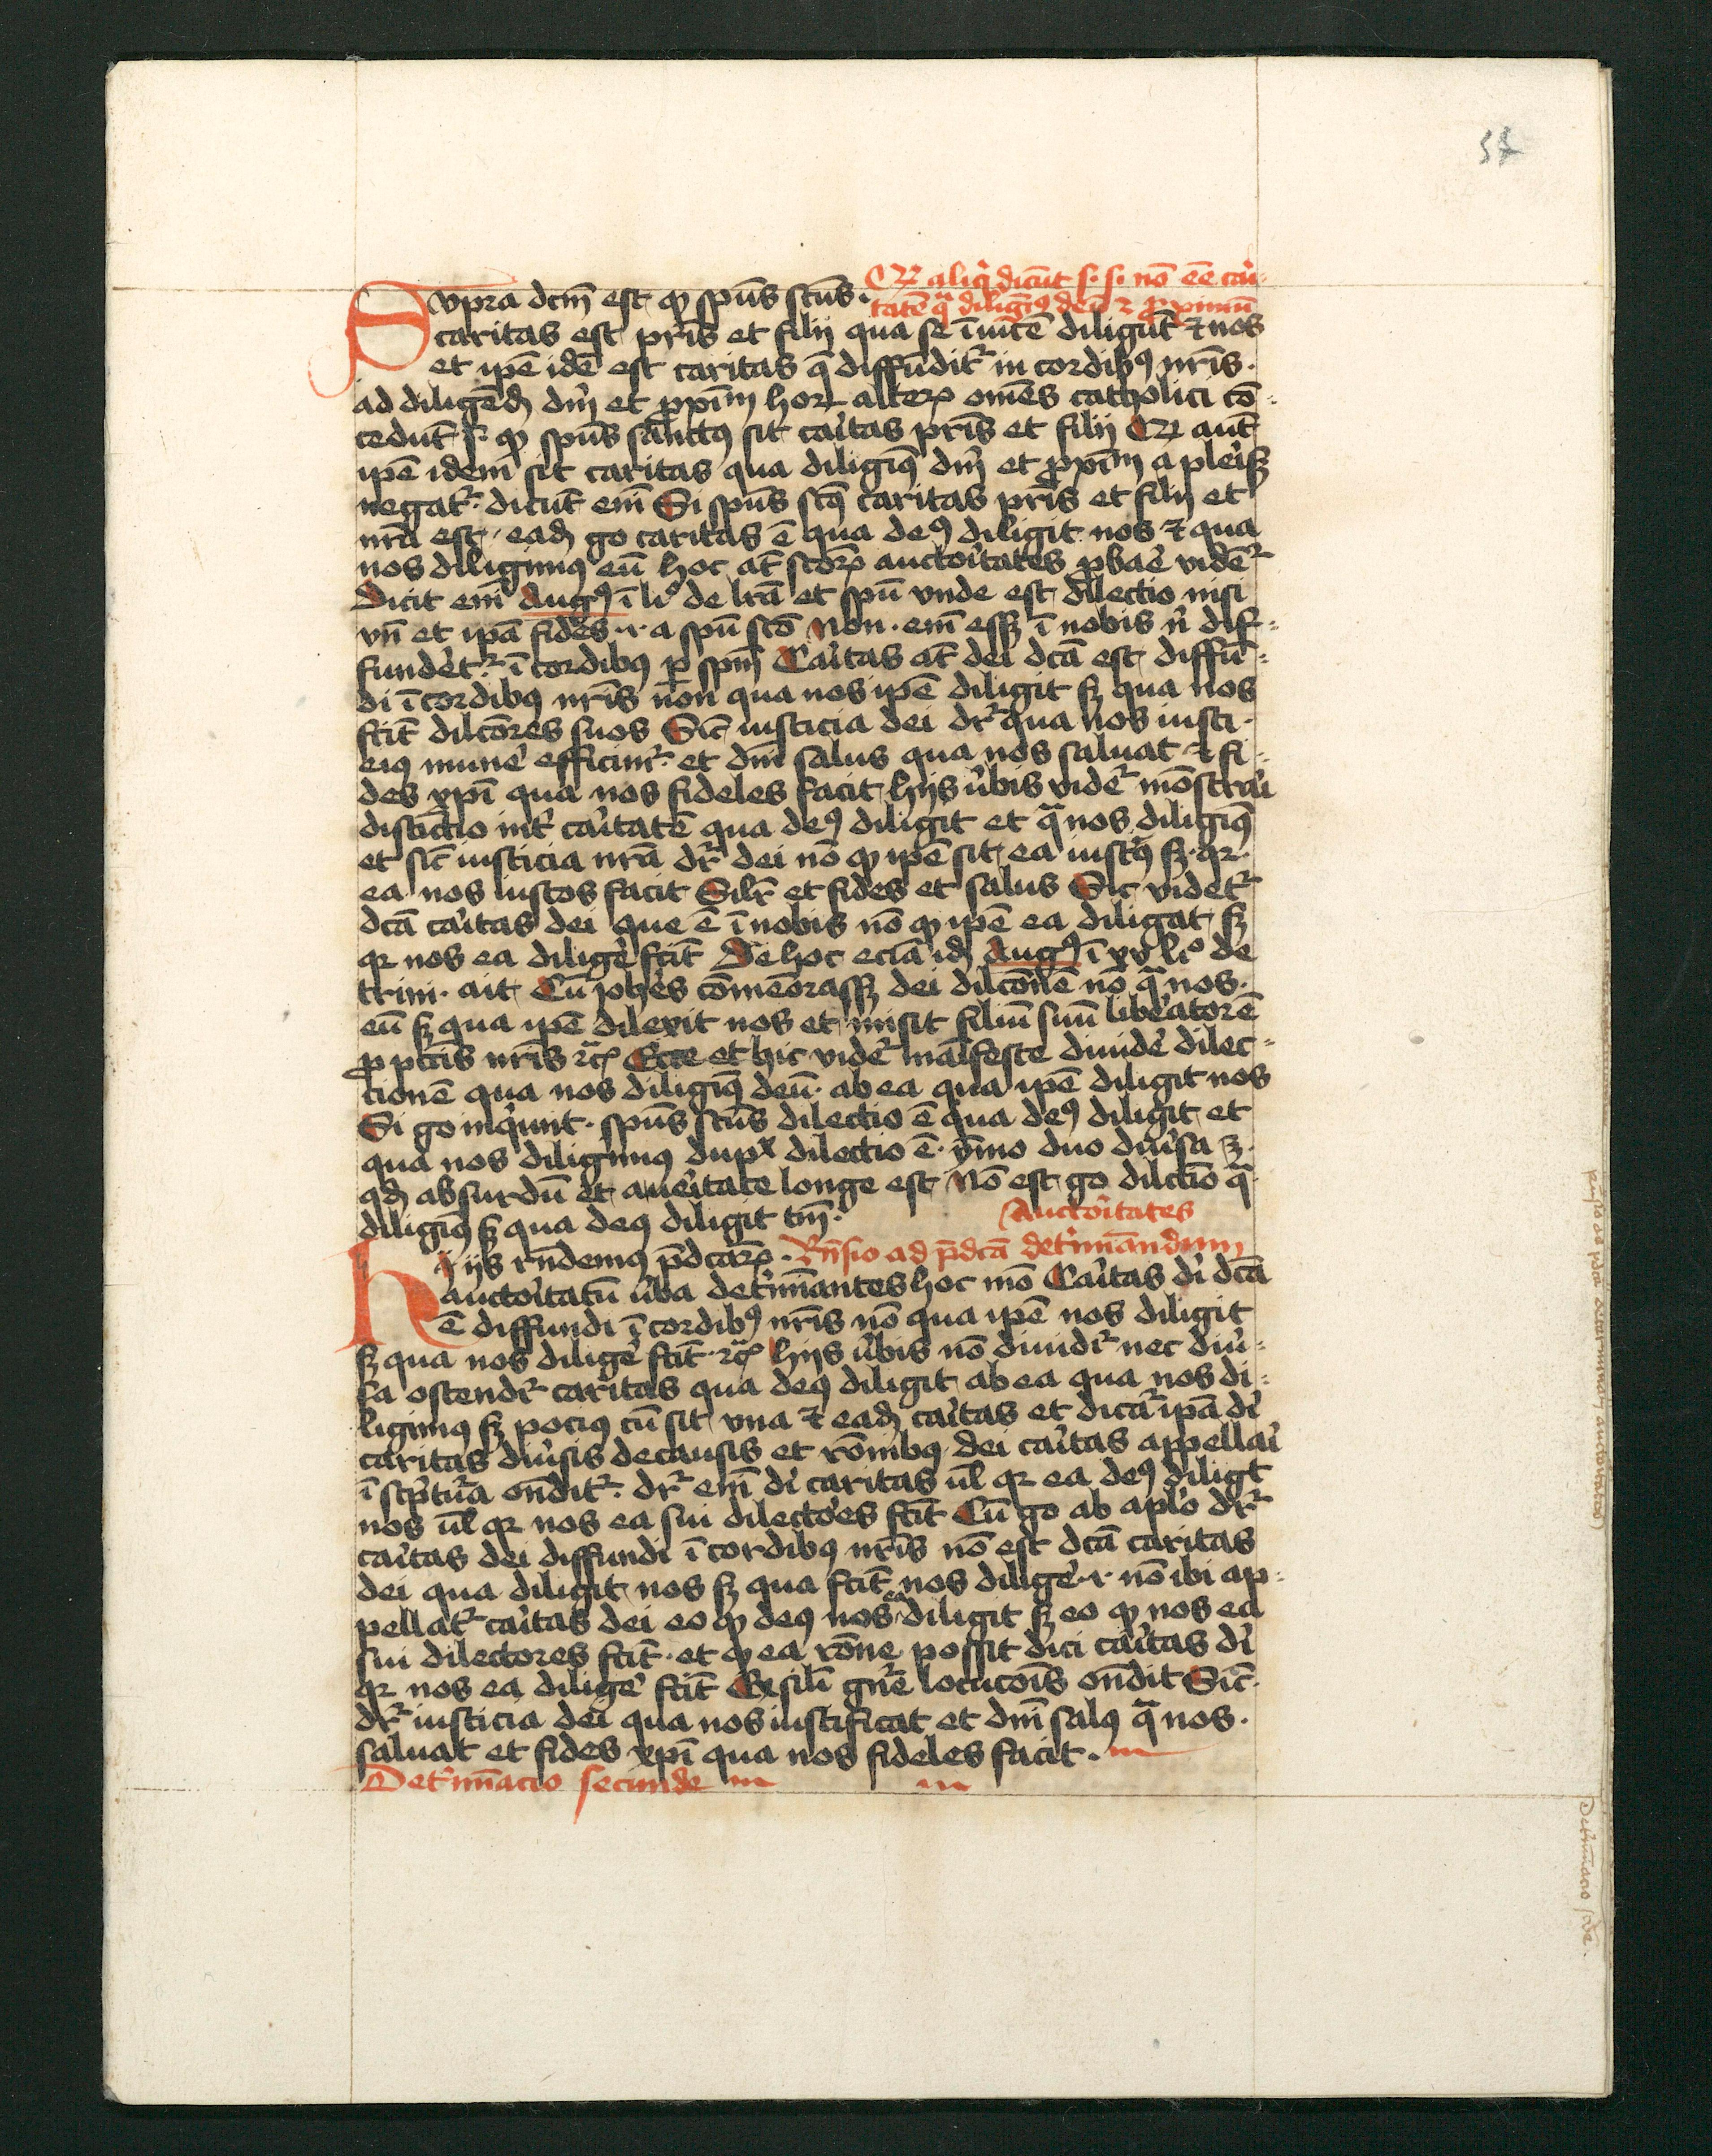 57
Qꝛ aliq̇ dicu̅t s. s. no̅ ee̅ cai̇
Supra dcm̅ est ꝙ spu̅s scu̅s.
tate̅ qᵃ diligim̅ꝰ deu̅ ⁊ ꝓximu̅
caritas est pr̅is et filij qua se i̅uice̅ diligu̅t ⁊ nos
et ip̅e ide̅ est caritas q̅ diffu̅ditᷣ in cordibꝰ nr̅is.
ad diligend̅ dm̅ et ꝓxi̅m horꝝ alterꝝ om̅es catholici co̅
cedu̅t .s. ꝙ spu̅s sanctꝰ sit cai̇tas pr̅is et filij Qꝛ aut̅
ip̅e idem sit caritas qua diligimꝰ dm̅ et ꝓxi̅m a plei̇sqꝫ
negatᷣ. dicu̅t em̅ Si spu̅s scu̅s caritas pr̅is et filij et
nr̅a est, ead̅ go caritas e̅ qua deꝰ diligit nos ⁊ qua
nos diligimꝰ eu̅ hoc at̅ sc̅orꝝ auctoi̇tates ꝓbaė vide̅tᷣ
Dicit em̅ Augꝰ i̅ liᵒ de lr̅a et spu̅ vnde est dilectio nisi
vn̅ et ip̅a fides .i. a spu̅ sco̅ Non em̅ essꝫ i̅ nobis nⁱ dif
fundėtᷣ i̅ cordibꝰ ꝑ spm̅ Cai̇tas at̅ dei dc̅a est diffu̅
di i̅ cordibꝰ nr̅is non qua nos ip̅e diligit sꝫ qua nos
fcit̅ dilc̅ores suos Sic̅ iusticia dei dr̅ qua nos iusti
eiꝰ munė efficimᷣ et dn̅i salus qua nos saluat ⁊ fi
des xp̅i qua nos fideles facit, hijs v̇bis videᷣ mo̅strai̇
disti̅ctio int̓ cai̇tate̅ qua deꝰ diligit et qᵃ nos diligimꝰ
et sic̅ iusticia nr̅a dr̅ dei no̅ ꝙ ip̅e sit ea iustꝰ sꝫ qꝛ
ea nos iustos facit Silr̅ et fides et salus Sic videtᷣ
dc̅a cai̇tas dei que e̅ i̅ nobis no̅ ꝙ ip̅e ea diligat, sꝫ
qꝛ nos ea diligė fcit̅ De hoc ecia̅ id̅ Augꝰ i̅ xv liᵒ de
trini. ait Cu̅ joh̅es co̅meo̅rassꝫ dei dilc̅oe̅m no̅ qᵃ nos
eu̅ sꝫ qua ip̅e dilexit nos et misit filiu̅ suu̅ libėatore̅
ꝓ pc̅tis nr̅is ⁊cꝭ Ecce et hic videᷣ ma̅ifeste diuidė dilec
tione̅ qua nos diligimꝰ deu̅ ab ea qua ip̅e diligit nos
Si go inq̇unt. spu̅s scu̅s dilectio e̅ qua deꝰ diligit et
qua nos diligimꝰ dupˣ dilectio e̅. ymo duo diuėsa ꝫ.
qd̅ absurdu̅ et a vei̇tate longe est No̅ est go dilc̅tio qᵃ
diligimꝰ sꝫ qua deꝰ diligit tm̅. Auctoi̇tates
Hijs rn̅demꝰ p̅dc̅arꝝ. Rn̅sio ad p̅dc̅a det̓mi̅andum
auctoi̇tatu̅ v̇ba det̓mi̅antes hoc mo̅ Cai̇tas di̇ dc̅a
e̅ diffundi i̅ cordibꝰ nr̅is no̅ qua ip̅e nos diligit
sꝫ qua nos diligė fcit̅ ⁊cꝭ hijs v̇bis no̅ diuidiᷣ nec diu̇
sa ostendiᷣ caritas qua deꝰ diligit ab ea qua nos di
ligimꝰ sꝫ pociꝰ cu̅ sit vna ⁊ ead̅ cai̇tas et dicatᷣ ip̅a di̇
caritas diu̇sis de causis et ro̅nibꝰ dei cai̇tas appellai̇
i̅ scⁱptᷣa on̅ditᷣ. dr̅ em̅ di̇ caritas vl̅ qꝛ ea deꝰ diligit
nos vl̅ qꝛ nos ea sui dilectoės fcit̅ Cu̅ go ab apl̅o dr̅
cai̇tas dei diffundi i̅ cordibꝰ nr̅is no̅ est dc̅a caritas
dei qua diligit nos sꝫ qua fcit̅ nos diligė .i. no̅ ibi ap
pellatᷣ cai̇tas dei eo ꝙ deꝰ nos ea diligit sꝫ eo ꝙ nos ea
sui dilectores fcit̅. et ꝙ ea ro̅ne possit dici cai̇tas di̇
qꝛ nos ea diligė fcit̅ Ex sil̅i gn̅e locuc̅ois on̅dit Sic̅
dr̅ iusticia dei qua nos iustificat et dn̅i salꝰ qᵃ nos.
saluat et fides xp̅i qua nos fideles facit.
Det̓mi̅acio secunde
Det̓mi̅acio scd̅e.